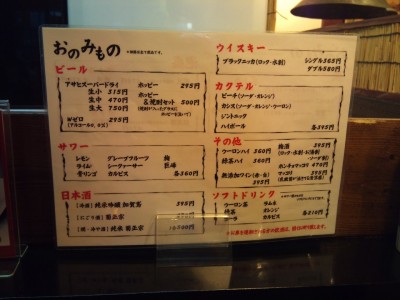 おのみもの
ビール
アサヒスーパードライ
生小 315円
生中 470円
生大 750円
ホッピー 295円
ホッピー
&焼酎セット 500円
Wゼロ 295円
(アルコール0.0%)
サワー
レモン グレープフルーツ 梅
ライム シークァーサー 巨峰
青リンゴ カルピス 各360円
日本酒
純米吟醸 加賀鳶 395円
(にごり酒) 菊正宗
純米 菊正宗
ウイスキー
ブラックニッカ(ロック・水割) シングル365円
ダブル580円
カクテル
ピーチ(ソーダ・オレンジ)
カシス(ソーダ・オレンジ・ウーロン)
ジントニック
ハイボール 各395円
その他
ウーロンハイ 360円
緑茶ハイ 360円
無添加ワイン(赤・白)
395円
梅酒 395円
ホンチョマッコリ 470円
マッコリ 395円
ソフトドリンク
ウーロン茶 ラムネ
緑茶 オレンジ
コーラ カルピス 各210円